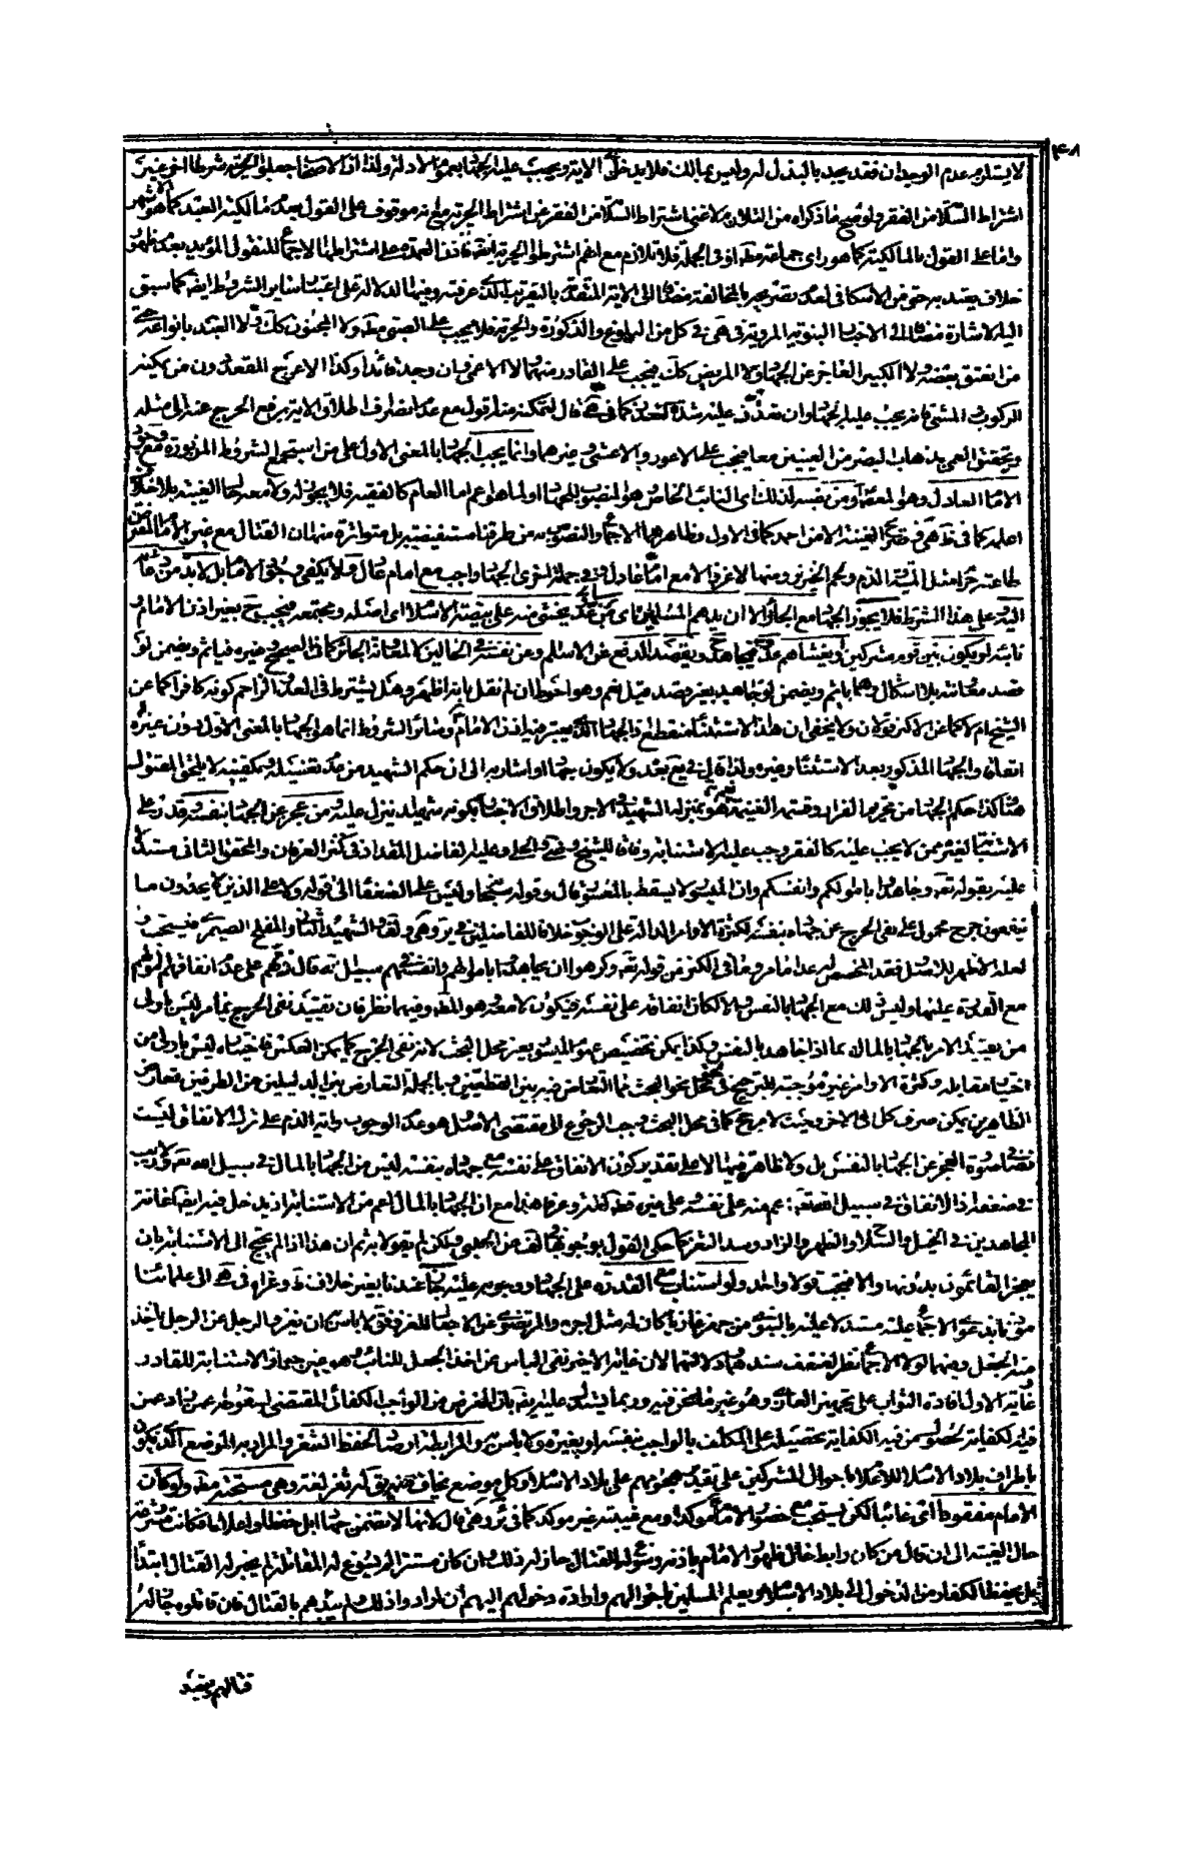 ۴۸۱
لا يستلزم عدم الوجدان فقد يجد بالبذل له وليس بمالك فلا يدخل في الاية ويجب عليه الجهاد بعموم الادلة ولذا ان الاصحاب جعلوا الحرية شرطا اخر غير
اشتراط السلامة من الفقر ولو صح ما ذكراه من التلازم لاغنى اشتراط السلامة من الفقر عن اشتراط الحرية مع انه موقوف على القول بعدم مالكية العبد كما هو الاشهر
واما على القول بالمالكية كما هو راى جماعة مطلقا او في الجملة فلا تلازم مع انهم اشترطوا الحرية ايضا فاذن العمدة على اشتراطها الاجماع المنقول المؤيد بعدم ظهور
خلاف يعتد به حتى من الاسكافي لعدم تصريحه بالمخالفة مضافا الى الاية المتقدمة بالتقريب الذي عرفته وفيها الدلالة على اعتبار ساير الشروط ايضا كما سبق
اليه الاشارة مضافا الى الاخبار النبوية المروية في هى في كل من البلوغ والذكورة والحرية فلا يجب على الصبى مطلقا ولا المجنون كذلك ولا العبد بانواعه حتى
من انعتق بعضه ولا الكبير العاجز عن الجهاد ولا المريض كذلك فيجب على القادر منهما ولا الاعمى وان وجد قائدا وكذا الاعرج المقعد دون من يمكنه
الركوب والمشى فانه يجب عليه الجهاد وان تعذر عليه شدة العدو كما في هى قال لتمكنه منه اقول مع عدم انصراف اطلاق الاية برفع الحرج عنه الى مثله
ويتحقق العمى بذهاب البصر من العينين معا فيجب على الاعور والاعشى وغيرهما وانما يجب الجهاد بالمعنى الاول على من استجمع الشروط المزبورة مع وجود
الامام العادل وهو المعصوم او من نصبه لذلك اى النائب الخاص وهو المنصوب للجهاد او لما هو اعم اما العام كالفقيه فلا يجوز له ولا معه حال الغيبة بلا خلاف
اعلمه كما في ظاهر هى وصريح الغنية الا من احمد كما في الاول وظاهرهما الاجماع والنصوص به من طرقنا مستفيضة بل متواترة منها ان القتال مع غير الامام المفترض
طاعته حرام مثل الميتة والدم ولحم الخنزير ومنها لا غزو الا مع امام عادل وفي جملة اخرى الجهاد واجب مع امام عادل ولا يكفى وجود الامام بل لا بد من دعائه
اليه على هذا الشرط فلا يجوز الجهاد مع الجائر الا ان يدهم المسلمين اى من عدو يخشى منه على بيضة الاسلام اى اصله ومجتمعه فيجب ح بغير اذن الامام او
نائبه او يكون بين قوم مشركين او يغشاهم عدو فيجاهد ويقصد الدفع عن الاسلام وعن نفسه في الحالين لا المعاونة الجائر كما في الصحيح وغيره فياثم ويضمن لو
قصد معاونته بلا اشكال وهل ياثم ويضمن لو جاهد بغير قصد قيل نعم وهو احوط ان لم نقل بانه اظهر وهل يشترط في العدو الزاحم كونه كافرا كما عن
الشيخ ام لا كما عن الاكثر قولان ولا يخفى ان هذا الاستثناء منقطع اذ الجهاد الذى يعتبر فيه اذن الامام وسائر الشروط انما هو الجهاد بالمعنى الاول دون غيره
اتفاقا والجهاد المذكور بعد الاستثناء وغيره ولذا قال في يع بعد ولا يكون جهادا واشار به الى ان حكم الشهيد من عدم تغسيله وتكفينه لا يلحق المقتول
هنا كذا حكم الجهاد من تحريم الفرار وقسمة الغنيمة نعم هو بمنزلة الشهيد في الاجر واطلاق الاخبار بكونه شهيدا ينزل عليه ومن عجز عن الجهاد بنفسه وقدر على
الاستنابة لغيره ممن لا يجب عليه كالفقير وجب عليه الاستنابة وفاقا للشيخ والقاضي والحلي وعليه الفاضل المقداد في كنز العرفان والمحقق الثاني مستدلا
عليه بقوله تعالى وجاهدوا باموالكم وانفسكم وان الميسور لا يسقط بالمعسور قال وقوله سبحانه وليس على الضعفاء الى قوله ولا على الذين لا يجدون ما
ينفقون حرج محمول على نفى الحرج عن جهاده بنفسه لكثرة الاوامر الدالة على الوجوب خلافا للفاضلين في يع وهى ولف والشهيد الثاني والمفلح الصيمرى فيستحب
لعله الاظهر للاصل فقد المخصص له عدا ما مر وما في الكنز من قوله تعالى وكرهوا ان يجاهدوا باموالهم وانفسهم في سبيل الله قال ذمهم على عدم انفاقهم اموالهم
مع القدرة عليها وليس ذلك مع الجهاد بالنفس والا لكان انفاقه على نفسه فيكون لا معه وهو المطلوب وفيهما نظر فان تقييد نفى الحرج بما مر ليس باولى
من تقييد الامر بالجهاد بالمال بما اذا جاهد بالنفس وكذا يمكن تخصيص عموم الميسور بغير محل البحث لادلة نفى الحرج كما يمكن العكس فاختياره ليس باولى من
اختيار مقابله وكثرة الاوامر غير موجبة للترجيح في نحو محل البحث مما التعارض فيه بين القطعيين وبالجملة التعارض بين الدليلين من الطرفين تعارض
الظاهرين يمكن صرف كل الى الاخر وحيث لا مرجح كما في محل البحث وجب الرجوع الى مقتضى الاصل وهو عدم الوجوب واية الذم على ترك الانفاق ليست
نصا في صورة العجز عن الجهاد بالنفس بل ولا ظاهرة فيها الا على تقدير كون الانفاق على نفسه مع جهاده بنفسه ليس من الجهاد بالمال في سبيل الله تعالى ولا ريب
في ضعفه اذ الانفاق في سبيل الله تعالى اعم منه على نفسه وعلى غيره قطعا لغة وعرفا هذا مع ان الجهاد بالمال اعم من الاستنابة اذ يدخل فيه ايضا اعانة
المجاهدين في الخيل والسلاح والظهر والزاد وسد الثغر كما حكى القول بوجوبها لف عن الحلبى ولكن لم يقولا به ثم ان هذا اذا لم يحتج الى الاستنابة بان
يعجز القائمون بدونها والا فيجب قولا واحدا ولو استناب مع القدرة على الجهاد ووجوبه عليه جاز عندنا بغير خلاف ظ وعزاه في هى الى علمائنا
مؤذنا بدعوى الاجماع عليه مستدلا عليه بالنبوى من جهز غازيا كان له مثل اجره والمرتضوى عن الاجعال للغزو فقال لا باس ان يغزو الرجل عن الرجل وياخذ
منه الجعل وفيهما لولا الاجماع نظر لضعف سندهما ودلالتهما لان غاية الاخير نفى الباس عن اخذ الجعل للنائب وهو غير جواز الاستنابة للقادر
غاية الاول افادة الثواب على تجهيز الغازى وهو غير ما نحن فيه وربما يستدل عليه ايضا بان الغرض من الواجب الكفائى المقتضى لسقوطه عمن زاد عمن
فيه الكفاية لحصوله ممن فيه الكفاية تحصيله على المكلف بالواجب بنفسه او بغيره ولا باس به والمرابطة ارصاد لحفظ الثغر والمراد به الموضع الذى يكون
باطراف بلاد الاسلام للاعلام باحوال المشركين على تقدير هجومهم على بلاد الاسلام وكل موضع يخاف منه يقال له ثغر لغة وهى مستحبة مطلقا ولو كان
الامام مفقودا اى غائبا لكن يستحب مع حضور الامام مؤكدا ومع غيبته غير موكد كما في ئر وهى قال لانها لا تتضمن جهادا بل حفظا واعلاما فكانت مشروعة
حال الغيبة الى ان قال من كان رابط حال ظهور الامام باذنه وسوغ له القتال جاز له ذلك وان كان مستترا لم يسوغ له المقاتلة لم يجز له القتال ابتداء
بل يحفظ الكفار من الدخول الى بلاد الاسلام ويعلم المسلمين باحوالهم وارادة دخولهم اليهم ان ارادوا ذلك ولم يبدءهم بالقتال فان قاتلوه جاز له
قتالهم ويقصد